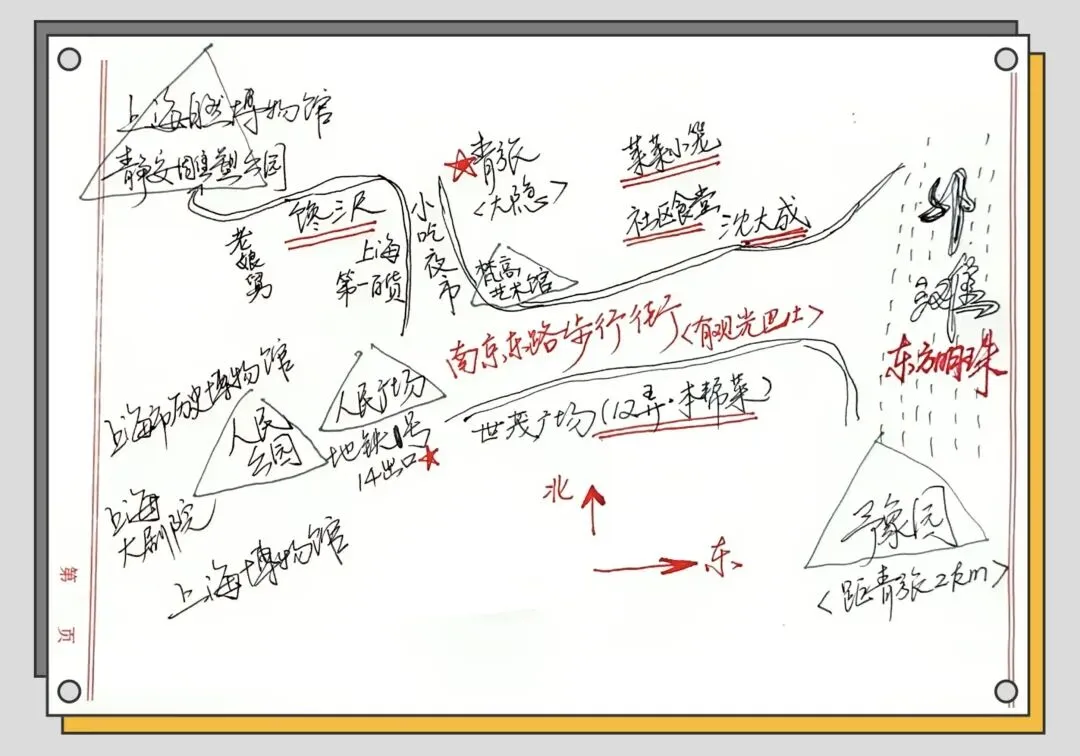 上海自然博物馆
静安雕塑公园
馋三尺
老娘舅
上海
第一百货
小吃夜市
青张
<大隐>
梵高
艺术馆
菜菜小笼
社区食堂
沈大成
外
滩
东方明珠
南京东路步行街<有观光巴士>
世茂广场(12弄·本帮菜)
上海市历史博物馆
人民
公园
人民广场
地铁1号
14出口
上海
大剧院
上海博物馆
北
东
豫园
<距青张2km>
第
页